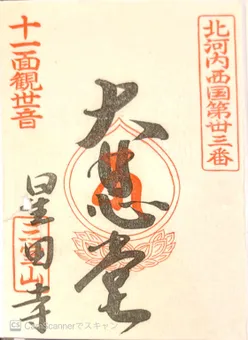 北河内西国第廿三番
大悲堂
十一面観世音
星田寺
CS CamScannerでスキャン